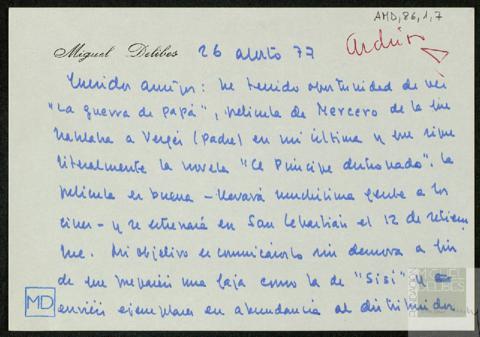 AMD,86,1,7
Miguel Delibes 26 agosto 77
Archivo
Queridos amigos: he tenido oportunidad de ver
"La guerra de papá", película de Mercero de la que
hablaba a Vergés (Padre) en mi última y que sigue
literalmente la novela "El Príncipe destronado". La
película es buena - llevará muchísima gente a los
cines - y se estrenará en San Sebastián el 12 de septiem
bre. Mi objetivo es comunicároslo sin demora a fin
de que preparéis una faja como la de "Sisí" y
enviéis ejemplares en abundancia al distribuidor
MD
MIGUEL
DELIBES